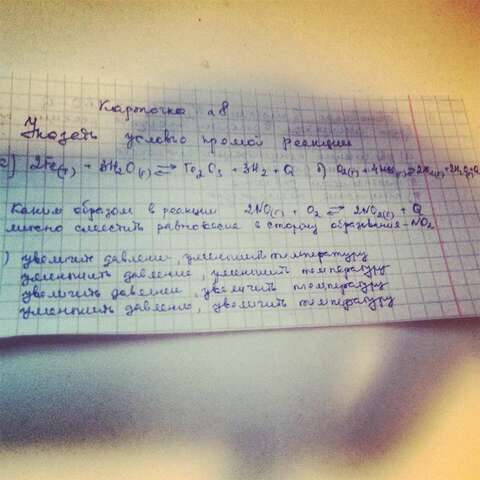 Карточка №8
Указать условия прямой реакции
а) 2Fe(т) + 3H₂O(г) ⇄ Fe₂O₃ + 3H₂ + Q б) O₂(г) + 4HCl(г) ⇄
Каким образом в реакции 2NO(г) + O₂ ⇄ 2NO₂(г) + Q
можно сместить равновесие в сторону образования NO₂
) увеличить давление, уменьшить температуру
уменьшить давление, уменьшить температуру
увеличить давление, увеличить температуру
уменьшить давление, увеличить температуру